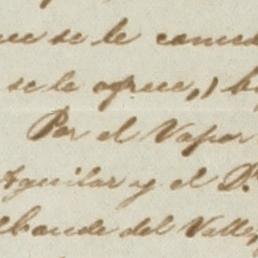 se le conced
se le ofrece,) b
Por el Vapor
Aguilar y el Dr
del Valle,